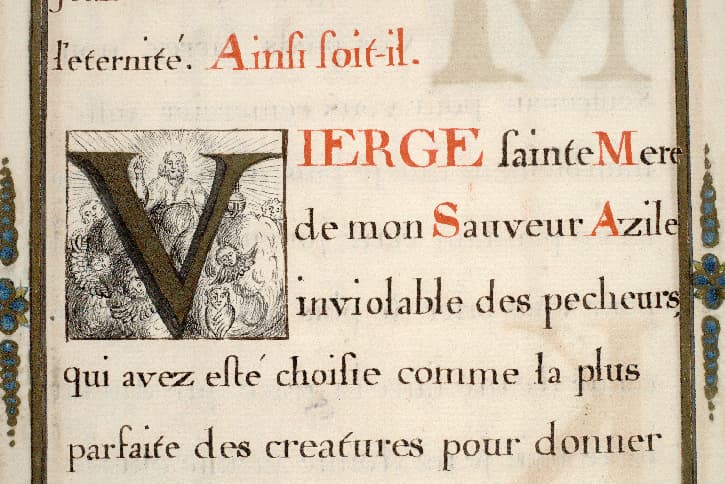 l'eternité. Ainſi ſoit-il.
VIERGE ſainte Mere
de mon Sauveur Azile
inviolable des pecheurs,
qui avez eſté choiſie comme la plus
parfaite des creatures pour donner